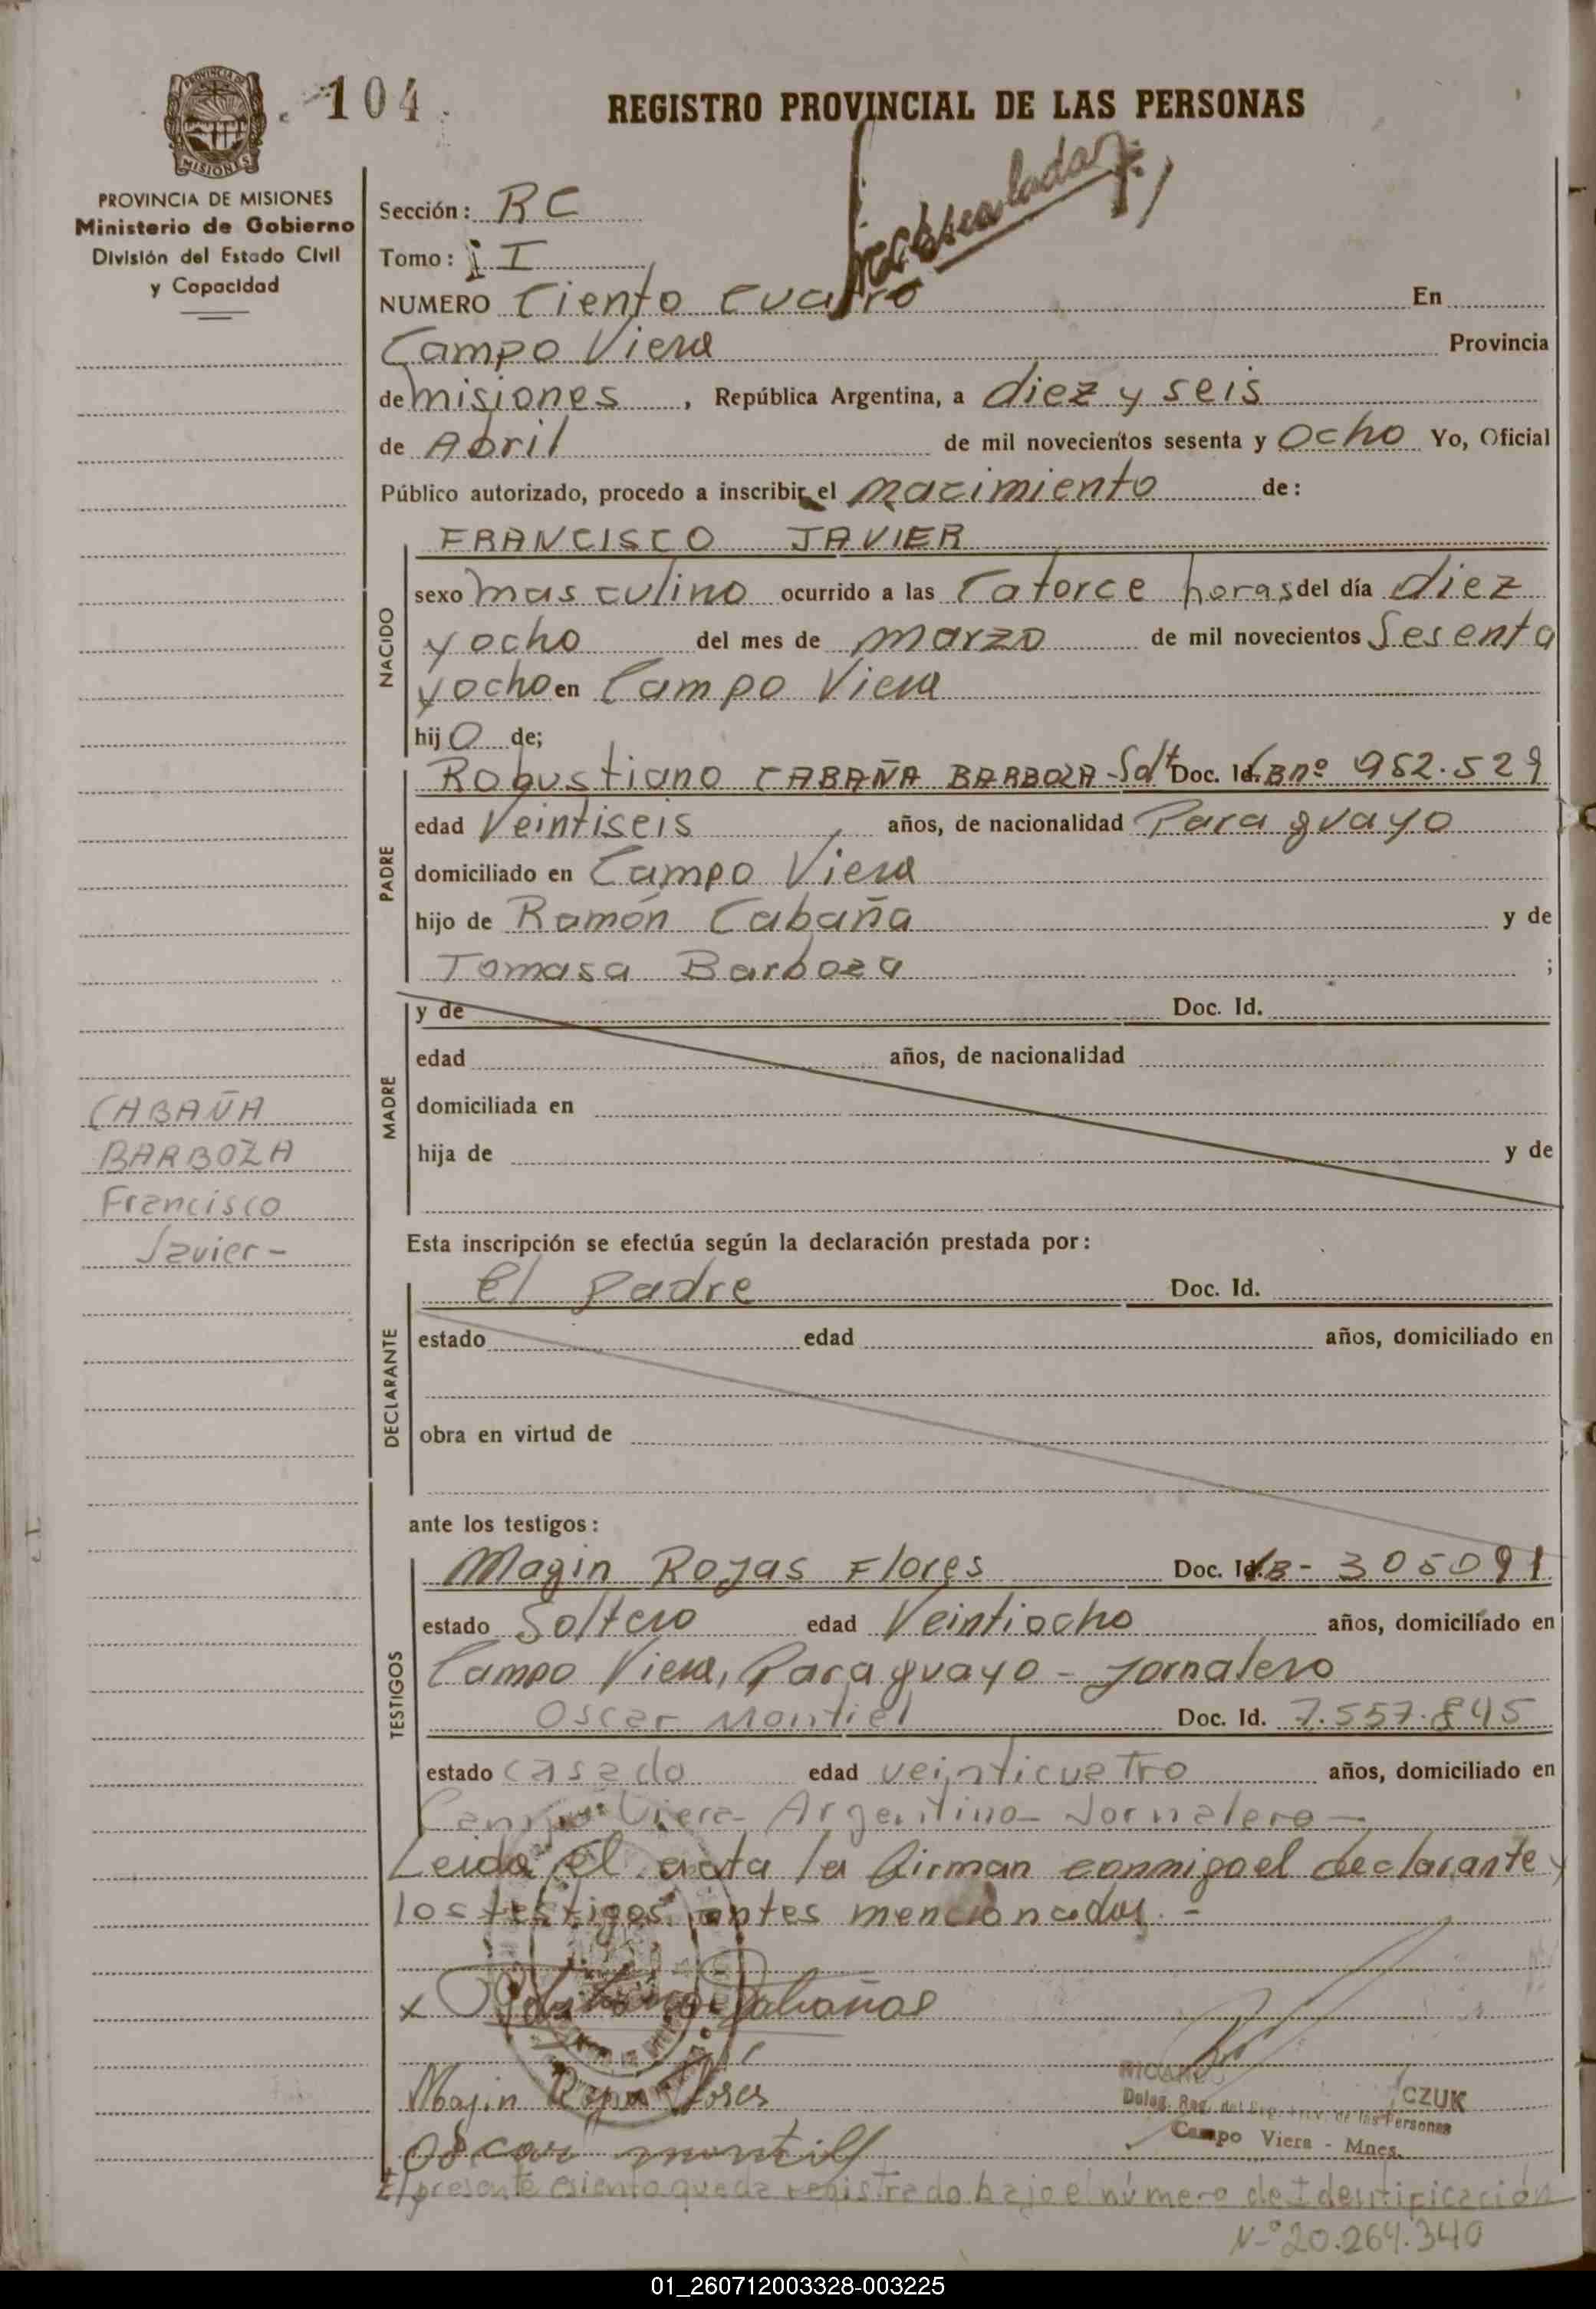 104
REGISTRO PROVINCIAL DE LAS PERSONAS
PROVINCIA DE MISIONES
Ministerio de Gobierno
División del Estado Civil
y Capacidad
Sección: RC
Tomo: I I
NUMERO Ciento Cuatro En
Campo Viera Provincia
de misiones, República Argentina, a diez y seis
de Abril de mil novecientos sesenta y Ocho Yo, Oficial
Público autorizado, procedo a inscribir el nacimiento de:
NACIDO
FRANCISCO JAVIER
sexo masculino ocurrido a las Catorce horas del día diez
y ocho del mes de marzo de mil novecientos Sesenta
y ocho en Campo Viera
hijo de;
PADRE
Robustiano CABAÑA BARBOZA - Solt Doc. Id. B nº 952.529
edad Veintiseis años, de nacionalidad Paraguayo
domiciliado en Campo Viera
hijo de Ramón Cabaña y de
Tomasa Barboza ;
MADRE
y de Doc. Id.
edad años, de nacionalidad
domiciliada en
hija de y de
CABAÑA
BARBOZA
Francisco
Javier -
Esta inscripción se efectúa según la declaración prestada por:
DECLARANTE
El padre Doc. Id.
estado edad años, domiciliado en
obra en virtud de
ante los testigos:
TESTIGOS
Magin Rojas Flores Doc. Id. B - 305091
estado Soltero edad Veintiocho años, domiciliado en
Campo Viera, Paraguayo - Jornalero
Oscar Montiel Doc. Id. 7.557.845
estado casado edad veinticuatro años, domiciliado en
Campo Viera - Argentino - Jornalero -
Leida el acta la firman conmigo el declarante y
los testigos antes mencionados. -
x Cabañas
Majin Rojas Flores
Oscar montiel
CZUK
Deleg. Reg. del Reg. Prov. de las Personas
Campo Viera - Mnes.
El presente asiento queda registrado bajo el número de Identificación
Nº 20.264.340
01_260712003328-003225